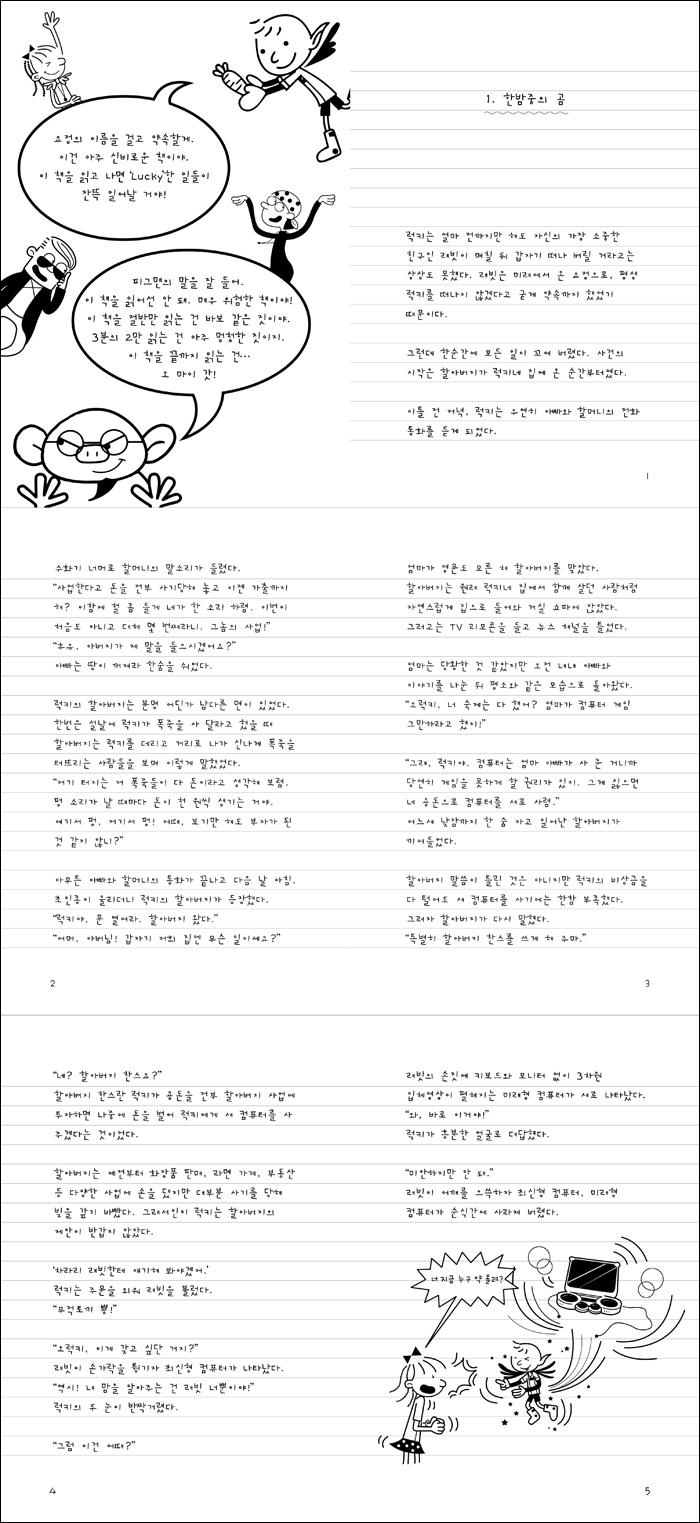 요정의 이름을 걸고 약속할게.
이건 아주 신비로운 책이야.
이 책을 읽고 나면 'Lucky'한 일들이
잔뜩 일어날 거야!
피그맨의 말을 잘 들어.
이 책을 읽어선 안 돼. 매우 위험한 책이야!
이 책을 절반만 읽는 건 바보 같은 짓이야.
3분의 2만 읽는 건 아주 멍청한 짓이지.
이 책을 끝까지 읽는 건…
오 마이 갓!
1. 한밤중의 곰
럭키는 얼마 전까지만 해도 자신의 가장 소중한
친구인 래빗이 며칠 뒤 갑자기 떠나 버릴 거라고는
상상도 못했다. 래빗은 미래에서 온 요정으로, 평생
럭키를 떠나지 않겠다고 굳게 약속까지 했었기
때문이다.
그런데 한순간에 모든 일이 꼬여 버렸다. 사건의
시작은 할아버지가 럭키네 집에 온 순간부터였다.
이틀 전 저녁, 럭키는 우연히 아빠와 할머니의 전화
통화를 듣게 되었다.
1
수화기 너머로 할머니의 말소리가 들렸다.
"사업한다고 돈을 전부 사기당해 놓고 이젠 가출까지
해? 이참에 철 좀 들게 네가 한 소리 하렴. 이번이
처음도 아니고 대체 몇 번째라니. 그놈의 사업!"
"휴우, 아버지가 제 말을 들으시겠어요?"
아빠는 땅이 꺼져라 한숨을 쉬었다.
럭키의 할아버지는 분명 어딘가 남다른 면이 있었다.
한번은 설날에 럭키가 폭죽을 사 달라고 했을 때
할아버지는 럭키를 데리고 거리로 나가 신나게 폭죽을
터뜨리는 사람들을 보며 이렇게 말했었다.
"저기 터지는 저 폭죽들이 다 돈이라고 생각해 보렴.
펑 소리가 날 때마다 돈이 천 원씩 생기는 거야.
여기서 펑, 저기서 펑! 어때, 보기만 해도 부자가 된
것 같지 않니?"
아무튼 아빠와 할머니의 통화가 끝나고 다음 날 아침,
초인종이 울리더니 럭키의 할아버지가 등장했다.
"럭키야, 문 열어라. 할아버지 왔다."
"어머, 아버님! 갑자기 저희 집엔 무슨 일이세요?"
2
엄마가 영문도 모른 채 할아버지를 맞았다.
할아버지는 원래 럭키네 집에서 함께 살던 사람처럼
자연스럽게 집으로 들어와 거실 소파에 앉았다.
그러고는 TV 리모콘을 들고 뉴스 채널을 틀었다.
엄마는 당황한 것 같았지만 오전 내내 아빠와
이야기를 나눈 뒤 평소와 같은 모습으로 돌아왔다.
"오럭키, 너 숙제는 다 했어? 엄마가 컴퓨터 게임
그만하라고 했지!"
"그래, 럭키야. 컴퓨터는 엄마 아빠가 사 준 거니까
당연히 게임을 못하게 할 권리가 있지. 그게 싫으면
네 용돈으로 컴퓨터를 새로 사렴."
어느새 낮잠까지 한 숨 자고 일어난 할아버지가
끼어들었다.
할아버지 말씀이 틀린 것은 아니지만 럭키의 비상금을
다 털어도 새 컴퓨터를 사기에는 한참 부족했다.
그러자 할아버지가 다시 말했다.
"특별히 할아버지 찬스를 쓰게 해 주마."
3
"네? 할아버지 찬스요?"
할아버지 찬스란 럭키가 용돈을 전부 할아버지 사업에
투자하면 나중에 돈을 벌어 럭키에게 새 컴퓨터를 사
주겠다는 것이었다.
할아버지는 예전부터 화장품 판매, 라면 가게, 부동산
등 다양한 사업에 손을 댔지만 대부분 사기를 당해
빚을 갚기 바빴다. 그래서인지 럭키는 할아버지의
제안이 반갑지 않았다.
'차라리 래빗한테 얘기해 봐야겠어.'
럭키는 주문을 외워 래빗을 불렀다.
"무적토끼 뿅!"
"오럭키, 이게 갖고 싶단 거지?"
래빗이 손가락을 튕기자 최신형 컴퓨터가 나타났다.
"역시! 내 맘을 알아주는 건 래빗 너뿐이야!"
럭키의 두 눈이 반짝거렸다.
"그럼 이건 어때?"
4
래빗의 손짓에 키보드와 모니터 없이 3차원
입체영상이 펼쳐지는 미래형 컴퓨터가 새로 나타났다.
"와, 바로 이거야!"
럭키가 흥분한 얼굴로 대답했다.
"미안하지만 안 돼."
래빗이 어깨를 으쓱하자 최신형 컴퓨터, 미래형
컴퓨터가 순식간에 사라져 버렸다.
너 지금 누구 약 올려?
5